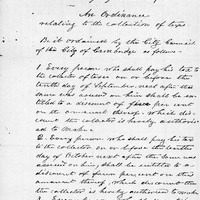 An Ordinance
relating to the collection of taxes
Be it ordained by the City Council
of the City of Cambridge as follows
1 Every person who shall pay his tax to
the collector of taxes on or before the
tenth day of September next after the
same was assessed on him shall be en-
titled to a discount of per cent
on the amount thereof. Which dis-
count the collector is hereby authoriz-
ed to make
2. Every person who shall pay his tax
to the collector on or before the tenth
day of October next after the same was
assessed on him shall be entitled to a
discount of four per cent on the
amount thereof, which discount the
the collector is hereby authorized to make
3. Every